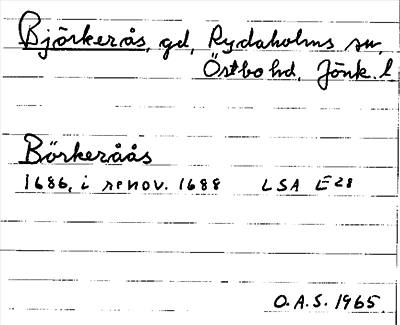 Björkerås, gd, Rydaholms sn,
Östbo hd, Jönk. l
Börkeråås
1686, i renov. 1688 LSA E28
O.A.S. 1965.